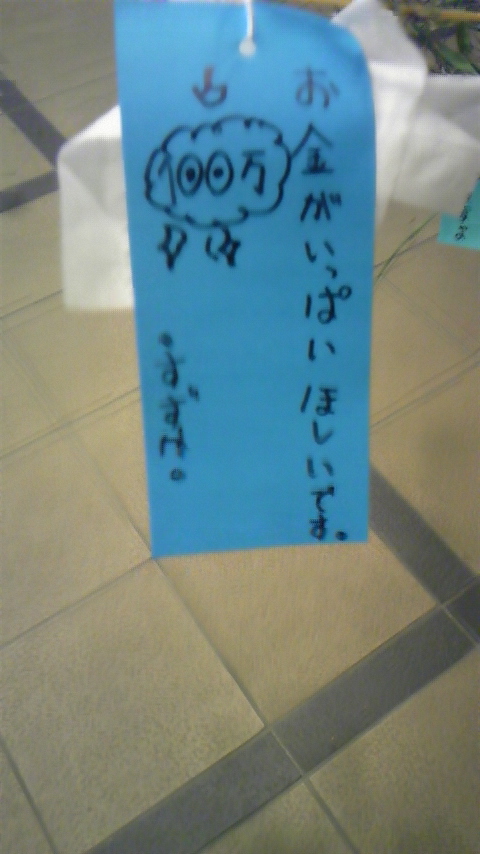 お金がいっぱいほしいです。
100万